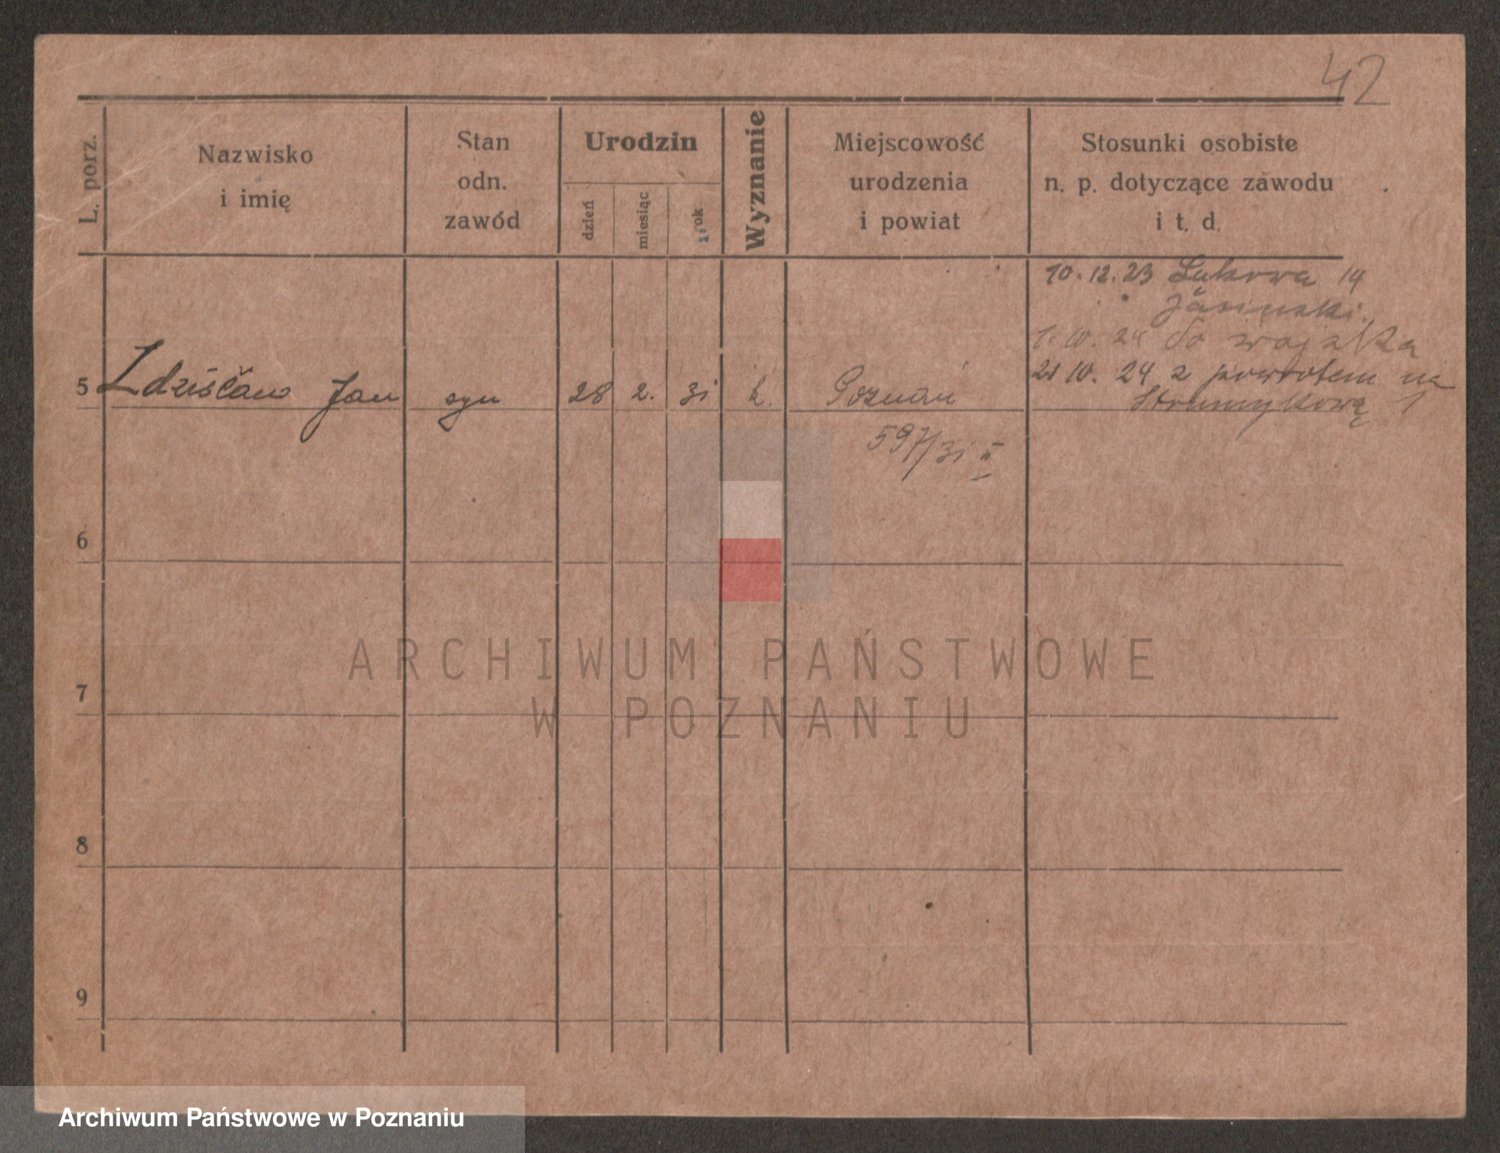 42
L. porz.
Nazwisko
i imię
Stan
odn.
zawód
Urodzin
dzień
miesiąc
rok
Wyznanie
Miejscowość
urodzenia
i powiat
Stosunki osobiste
n. p. dotyczące zawodu
i t. d.
10.12.23 Łąkowa 14
Jasiński
1.10.24 do wojska
21 10. 24 z powrotem na
Strumykową 1
5 Zdzisław Jan syn 28 2. 31 k. Poznań
597/31 II
6
7
8
9
ARCHIWUM PAŃSTWOWE
W POZNANIU
Archiwum Państwowe w Poznaniu